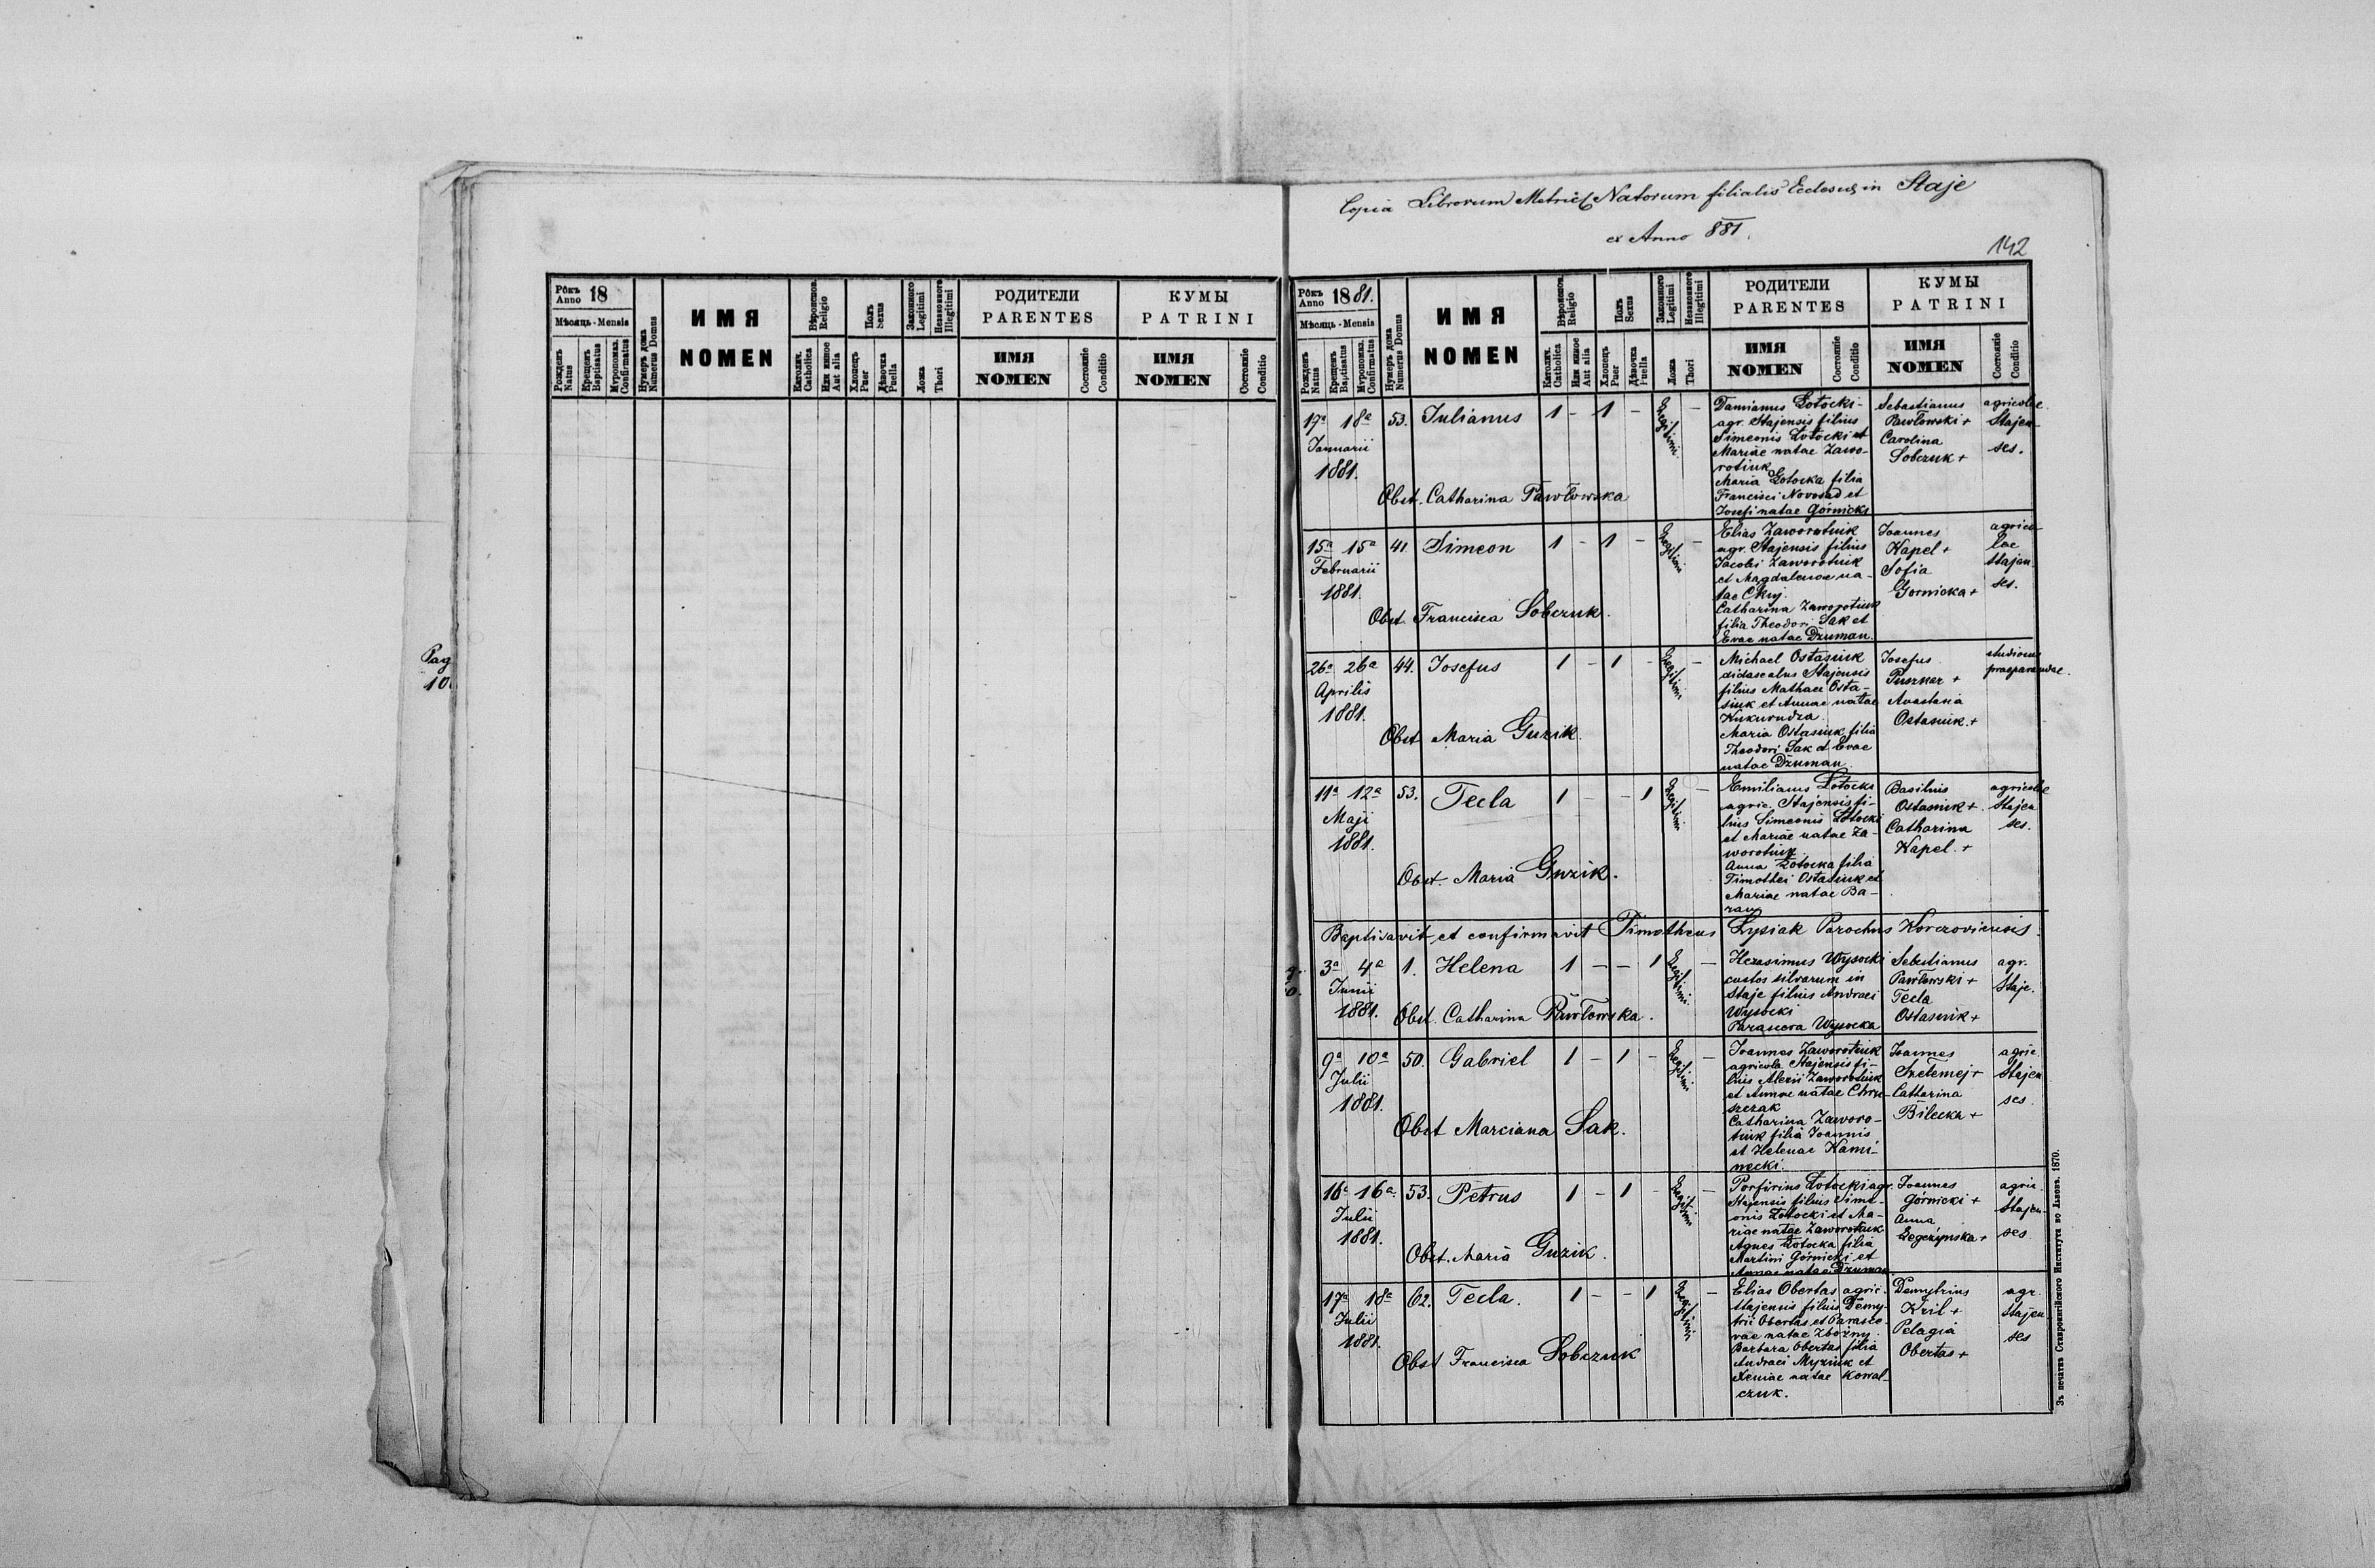 Copia Librorum Metric. Natorum filialis Ecclesiae in Staje
ex Anno 881.
142
Рôкъ Anno 18
Мѣсяць - Mensis
Рожденъ Natus
Крещенъ Baptisatus
Мѵропомаз. Confirmatus
Нумеръ дома Numerus Domus
ИМЯ
NOMEN
Вѣроиспов. Religio
Католич. Catholica
Или инное Aut alia
Полъ Sexus
Хлопець Puer
Дѣвочка Puella
Законного Legitimi
Незаконного Illegitimi
Ложа
Thori
РОДИТЕЛИ
PARENTES
ИМЯ
NOMEN
Состояніе
Conditio
КУМЫ
PATRINI
ИМЯ
NOMEN
Состояніе
Conditio
Pag
10
Рôкъ Anno 1881.
Мѣсяць - Mensis
Рожденъ Natus
Крещенъ Baptisatus
Мѵропомаз. Confirmatus
Нумеръ дома Numerus Domus
ИМЯ
NOMEN
Вѣроиспов. Religio
Католич. Catholica
Или инное Aut alia
Полъ Sexus
Хлопець Puer
Дѣвочка Puella
Законного Legitimi
Незаконного Illegitimi
Ложа
Thori
РОДИТЕЛИ
PARENTES
ИМЯ
NOMEN
Состояніе
Conditio
КУМЫ
PATRINI
ИМЯ
NOMEN
Состояніе
Conditio
17a 18a 53. Julianus 1 - 1 - Legitimi -
Januarii
1881.
Obst. Catharina Pawłowska
Damianus Łotocki
agr. Stajensis filius
Simeonis Łotocki et
Mariae natae Zawo-
rotiuk
Maria Łotocka filia
Francisci Novosad et
Josefi natae Górnicki
Sebastianus
Pawłowski +
Carolina
Sobczuk +
agricolae
Stajen-
ses.
15a 15a 41 Simeon 1 - 1 - Legitimi -
Februarii
1881.
Obst. Francisca Sobczuk.
Elias Zaworotiuk
agr. Stajensis filius
Jacobi Zaworotiuk
et Magdalenae na-
tae Ckuj.
Catharina Zaworotiuk
filia Theodori Sak et
Evae natae Dzuman.
Joannes
Kapel +
Sofia
Gornicka +
agrico-
lae
Stajen-
ses.
26a 26a 44. Josefus 1 - 1 - Legitimi -
Aprilis
1881.
Obst Maria Guzik.
Michael Ostasiuk
didascalus Stajensis
filius Mathaei Osta-
siuk et Annae natae
Kukurudza.
Maria Ostasiuk filia
Theodori Sak et Evae
natae Dzuman.
Josefus
Puszkar +
Anastasia
Ostasiuk. +
studiosus
praeparandae.
11a 12a 53. Tecla 1 - - 1 Legitimi -
Maji
1881.
Obst. Maria Guzik.
Emilianus Łotocki
agric. Stajensis fi-
lius Simeonis Łotocki
et Mariae natae Za-
worotiuk.
Anna Łotocka filia
Timothei Ostasiuk et
Mariae natae Ba-
ran
Basilius
Ostasiuk +
Catharina
Kapel. +
agricolae
Stajen
ses.
Baptisavit et confirmavit Timotheus Łysiak Parochus Korczoviensis.
3a 4a 1. Helena 1 - - 1 Legitimi -
Junii
1881.
Obst. Catharina Pawłowska.
Herasimus Wysocki
custos silvarum in
Staje filius Andraei
Wysocki
Parascera Wysocka
Sebastianus
Pawłowski +
Tecla
Ostasiuk +
agr.
Staje.
9a 10a 50. Gabriel 1 - 1 - Legitimi -
Julii
1881.
Obst Marciana Sak.
Joannes Zaworotiuk
agricola Stajensis fi-
lius Alexii Zaworotiuk
et Annae natae Chrz-
szczak
Catharina Zaworo-
tiuk filia Joannis
et Helenae Kami-
necki.
Joannes
Szełemej +
Catharina
Bilecka +
agric.
Stajen
ses.
16a 16a 53. Petrus 1 - 1 - Legitimi -
Julii
1881.
Obst. Maria Guzik.
Porfirius Łotocki agr.
Stajensis filius Sime-
onis Łotocki et Ma-
riae natae Zaworotiuk
Agnes Łotocka filia
Martini Górnicki et
Annae natae Dzuman
Joannes
Górnicki +
Anna
Łegczynska +
agric.
Stajen-
ses
17a 18a 62. Tecla. 1 - - 1 Legitimi -
Julii
1881.
Obst Francisca Sobczuk
Elias Obertas agric.
Stajensis filius Demy-
trii Obertas et Parasce-
vae natae Zbożny.
Barbara Obertas filia
Andraei Myziuk et
Xeniae natae Kowal-
czuk.
Demytrius
Kril +
Pelagia
Obertas +
agr.
Stajen
ses
Зъ печатнѣ Ставропигійского Института во Львовѣ. 1870.